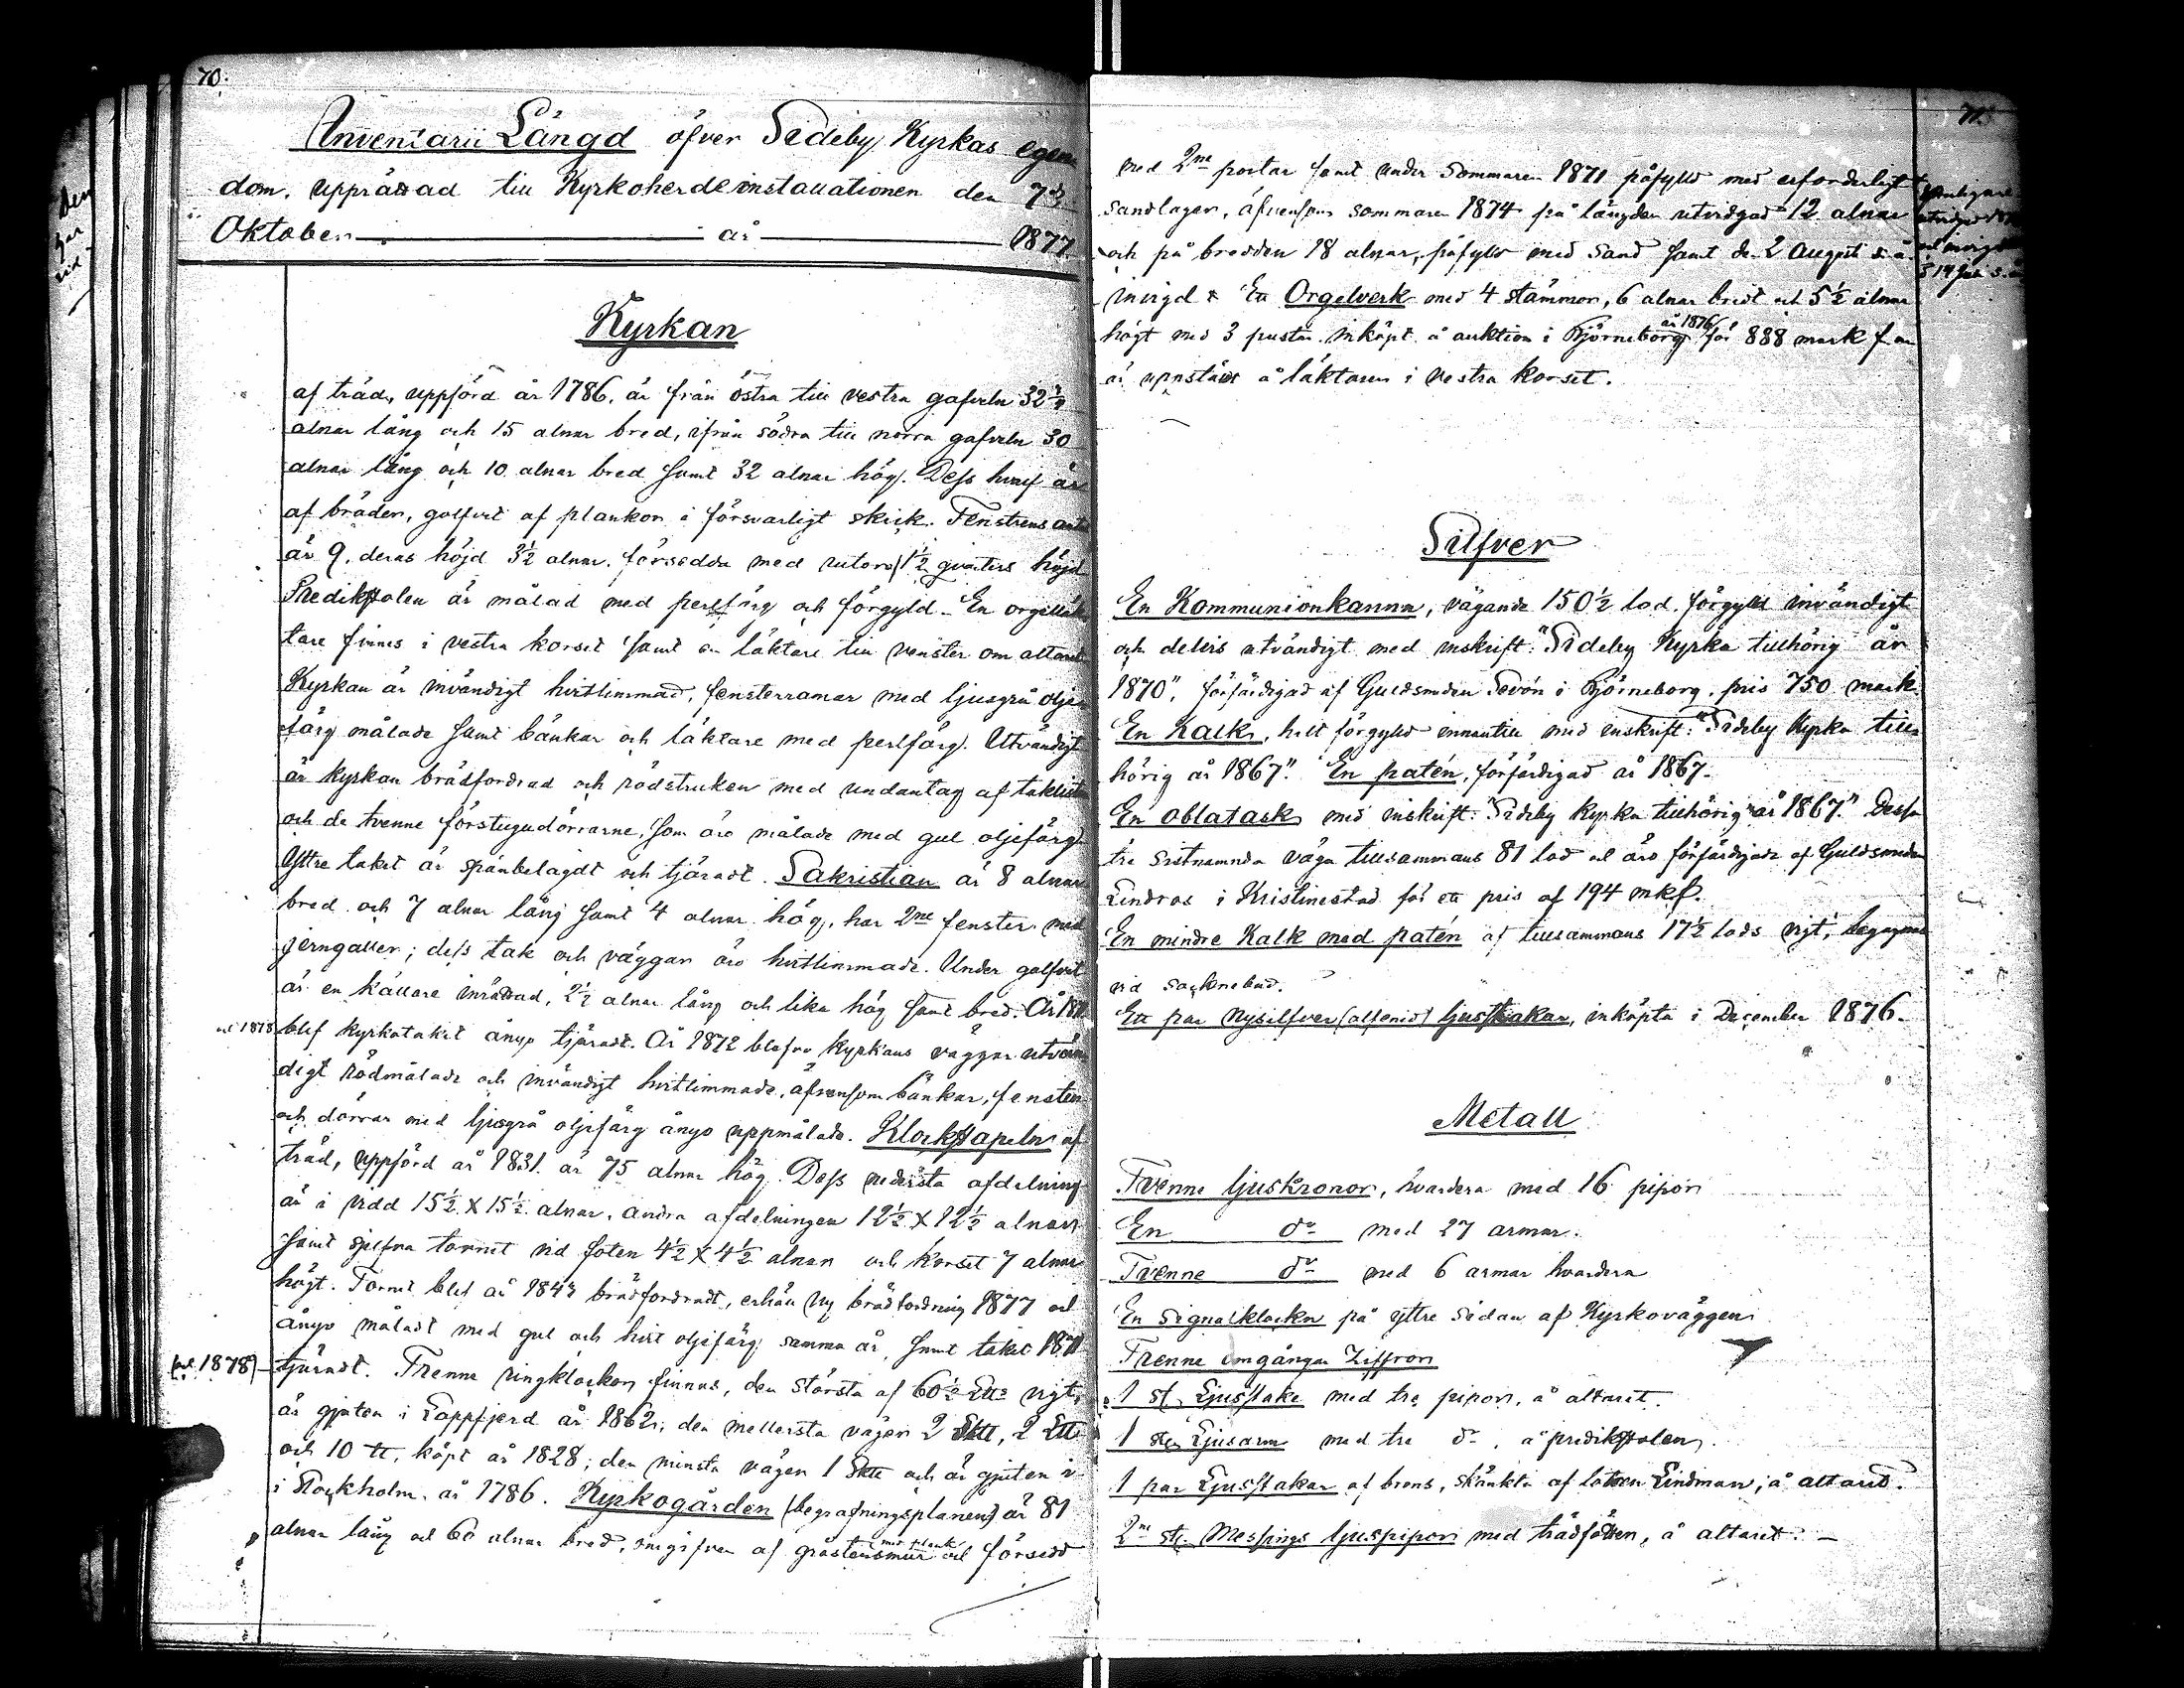 70.
Inventarii Längd öfver Sideby Kyrkas egen
dom, upprättad till Kyrkoherdeinstallationen den 7de
Oktober år 1877.
Kyrkan
af träd, uppförd år 1786, är från östra till vestra gafveln 32½
alnar lång och 15 alnar bred, ifrån södra till norra gafveln 30
alnar lång och 10 alnar bred samt 32 alnar hög. Dess hvalf är
af bräder, golfvet af plankor i försvarligt skick. Fenstrens antal
är 9, deras höjd 3½ alnar, försedda med rutor 1½ qvarters höjd
Predikstolen är målad med perlfärg och förgyld. En orgelläk
tare finnes i vestra korset samt en läktare till venster om altaret
Kyrkan är invändigt hvitlimmad, fensterramar med ljusgrå olje
färg målade samt bänkar och läktare med perlfärg. Utvändigt
är kyrkan brädfordrad och rödstruken med undantag af taklisten
och de tvenne förstugudörrarne, som äro målade med gul oljefärg.
Yttre taket är spånbelagdt och tjäradt. Sakristian är 8 alnar
bred och 7 alnar lång samt 4 alnar hög, har 2ne fenster med
jerngaller; dess tak och väggar äro hvitlimmade. Under golfvet
är en källare inrättad, 2½ alnar lång och lika hög samt bred. År 1871
och 1878
blef kyrkotaket ånyo tjäradt. År 1872 blefvo kyrkans väggar utvän
digt rödmålade och invändigt hvitlimmade, äfvensom bänkar, fenster
och dörrar med ljusgrå oljefärg ånyo uppmålade. Klockstapeln af
träd, uppförd år 1831 är 75 alnar hög. Dess nedersta afdelning
är i vidd 15½ X 15½ alnar, andra afdelningen 12½ X 12½ alnar
samt sjelfva tornet vid foten 4½ X 4½ alnar och korset 7 alnar
högt. Tornet blef år 1843 brädfordradt, erhöll ny brädfordning 1877 och
ånyo måladt med gul och hvit oljefärg samma år, samt taket 1871
(och 1878)
tjäradt. Trenne ringklockor finnas, den största af 60½ L℔s vigt,
är gjuten i Lappfjerd år 1862; den mellersta väger 2 Sk℔, 2 L℔
och 10 ℔, köpt år 1828; den minsta väger 1 Sk℔ och är gjuten i
i Stockholm år 1786. Kyrkogården (begrafningsplanen) är 81
alnar lång och 60 alnar bred, omgifven af gråstensmur med plank och försedd
71.
med 2ne portar samt under Sommaren 1871 påfylld med erforderligt
sandlager, äfvensom sommaren 1874 på längden utvidgad 12 alnar
och på bredden 18 alnar, påfylld med sand samt den 2 Augusti s. å.
invigd. Ett Orgelverk med 4 stämmor, 6 alnar bredt och 5½ alnar
högt med 3 pustar inköpt å auktion i Björneborg år 1876 för 888 mark
är uppstäldt å läktaren i vestra korset.
Silfver
En Kommunionkanna, vägande 150½ lod, förgylld invändigt
och delvis utvändigt med inskrift: "Sideby Kyrka tillhörig år
1870", förfärdigad af Guldsmeden Sevón i Björneborg, pris 750 mark.
En Kalk, helt förgylld innantill med inskrift: "Sideby Kyrka till
hörig år 1867". En patén, förfärdigad år 1867.
En oblatask med inskrift: "Sideby Kyrka tillhörig år 1867." Dessa
tre sistnämnda väga tillsammans 81 lod och äro förfärdigade af Guldsmeden
Lindroos i Kristinestad för ett pris af 194 mkf.
En mindre Kalk med patén af tillsammans 17½ lods vigt, begagnas
vid socknebud.
Ett par Nysilfver (alfenid) ljusstakar, inköpta i December 1876.
Metall
Tvenne ljuskronor, hvardera med 16 pipor
En do med 27 armar.
Tvenne do med 6 armar hvardera
En signalklocka på yttre sidan af Kyrkoväggen
Trenne omgångar Ziffror
1 st. Ljusstake med tre pipor, å altaret.
1 st. Ljusarm med tre do, å predikstolen.
1 par Ljusstakar af brons, skänkta af lotsen Lindman, å altaret.
2ne st. Messings ljuspipor med trädfötter, å altaret. —